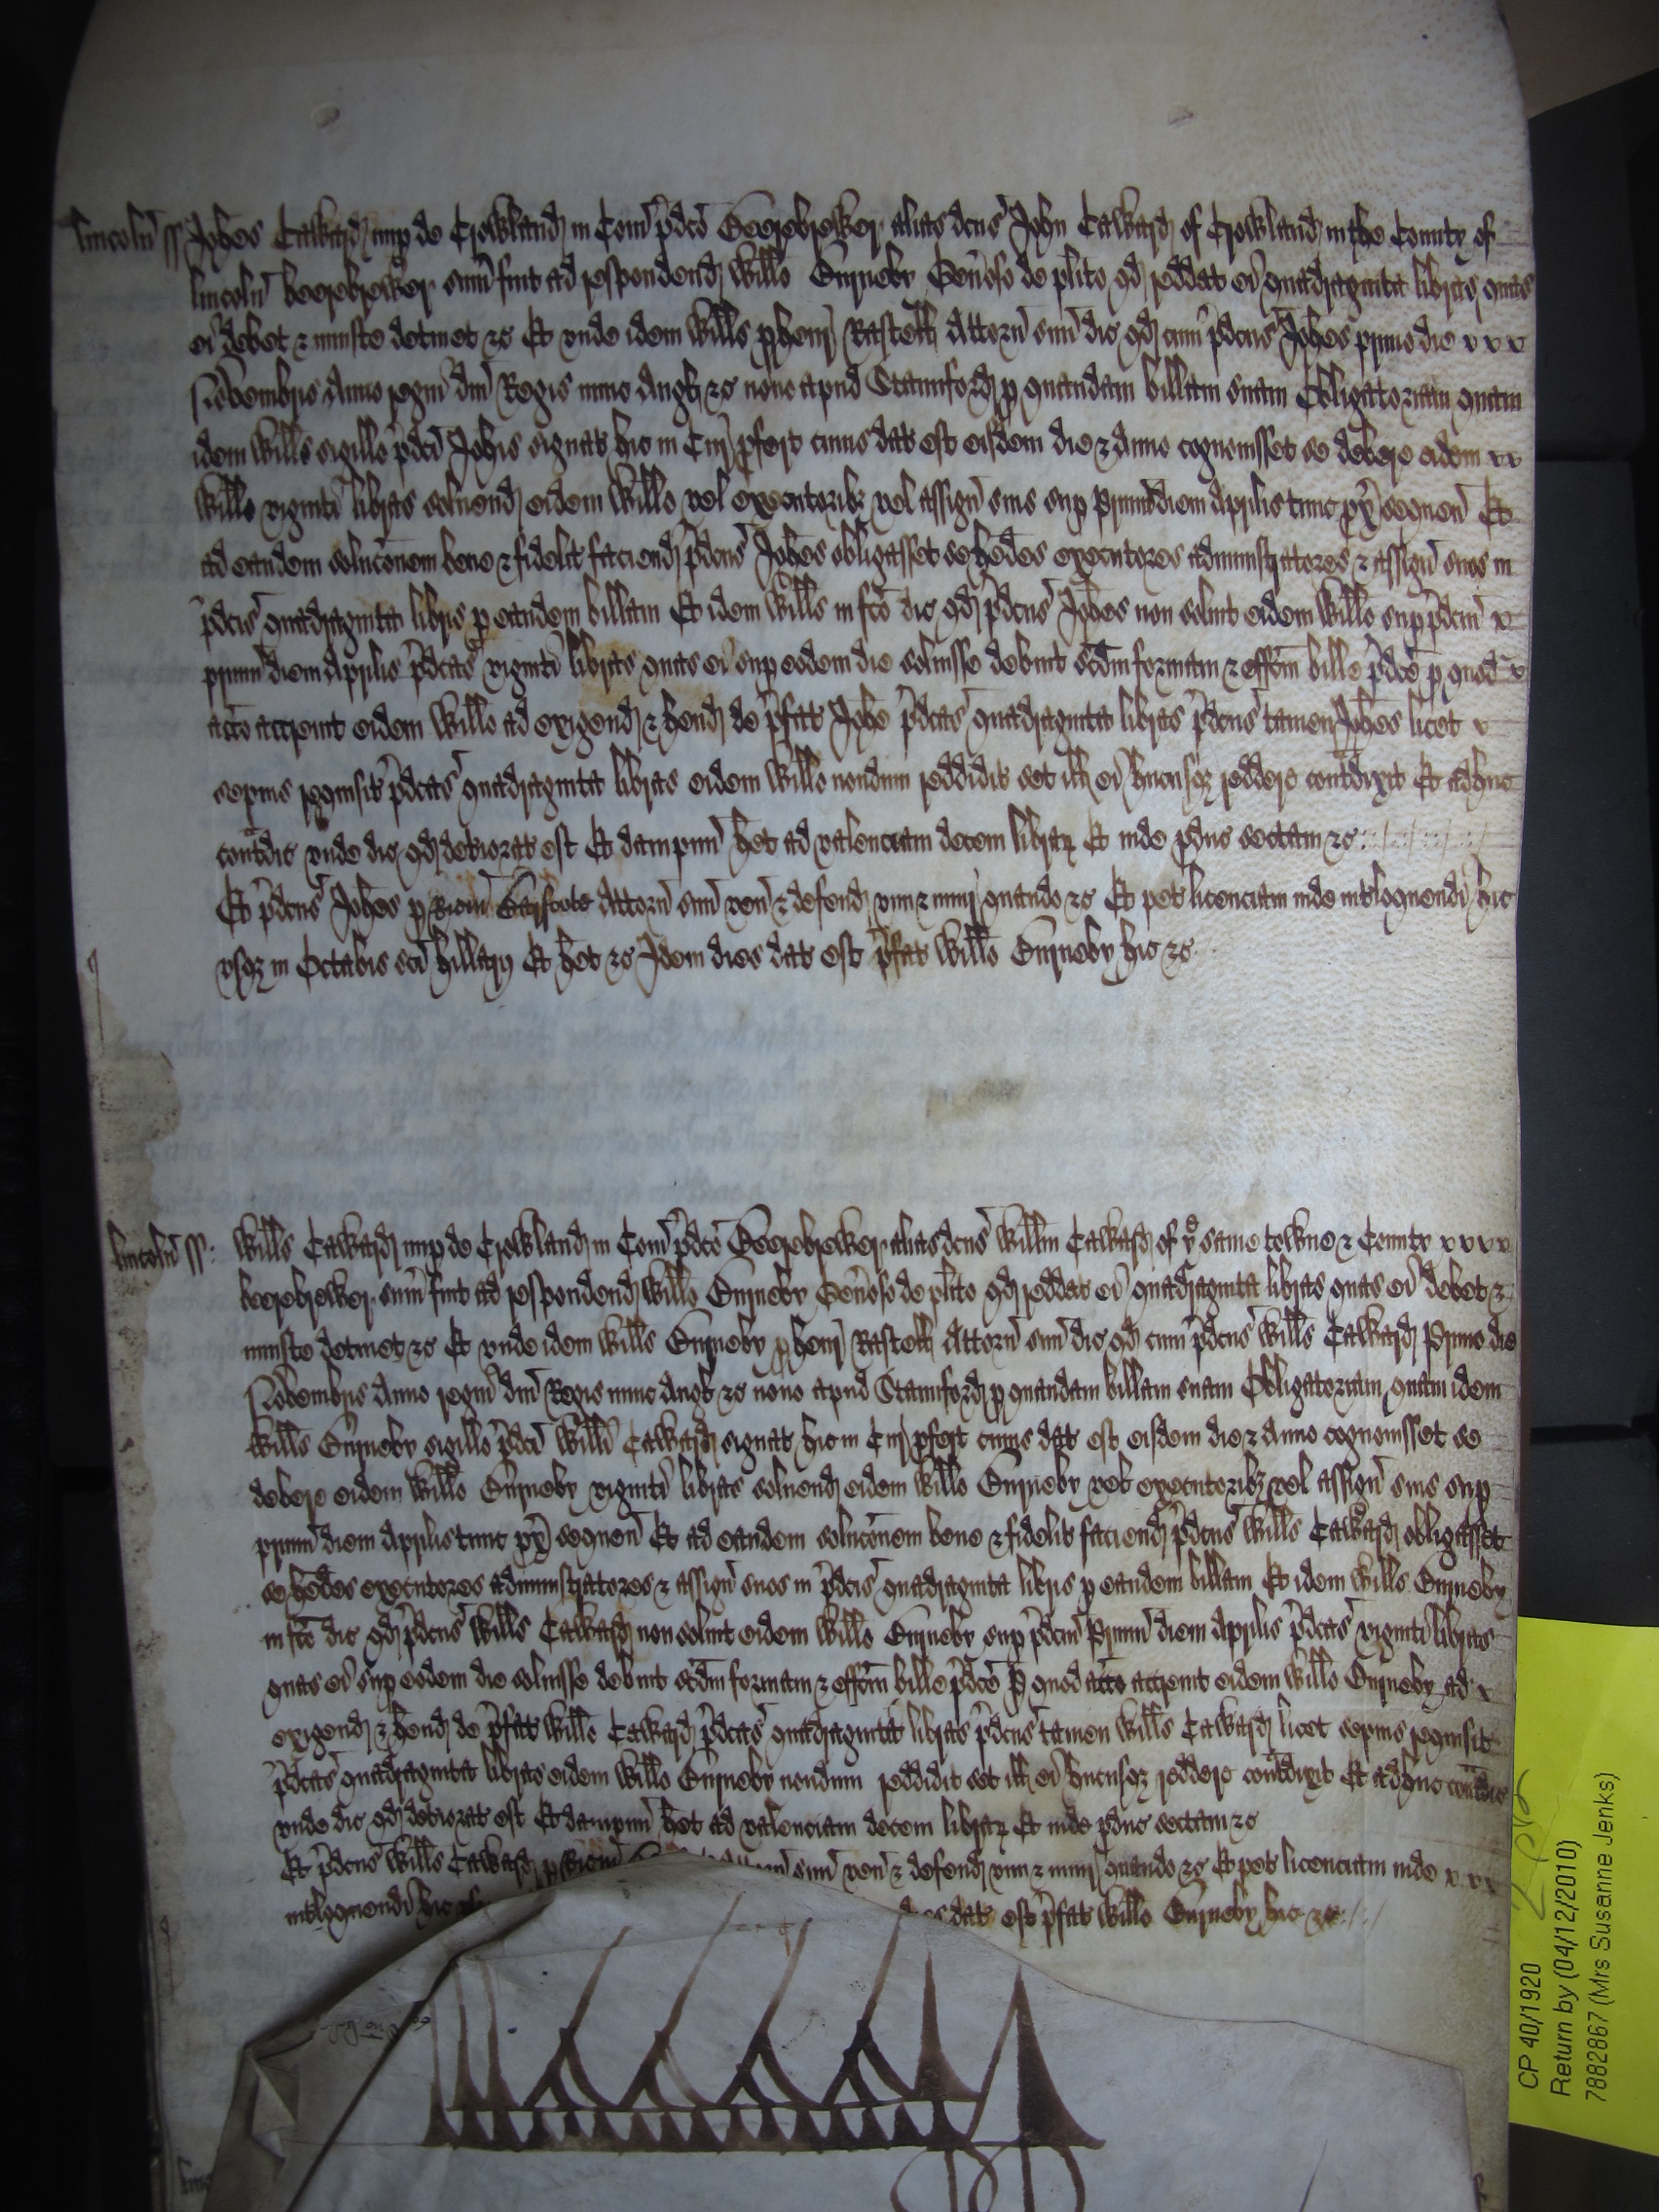 lincoln ss Johes Calkard nup de Crowland in Com pdco Beerebrewer alias dcus John Calkard of Crowland in the County of
lincoln beerebrewer sum fuit ad respondend Willo Burneby Genoso de plito qd reddat ei quadraginta libras quas
ei debet & iniuste detinet &c Et unde idem Wills p henr Rastell Attorn suu dic qd cum pdcus Johes primo die x x x
Novembris Anno regni dni Regis nunc Angl &c nono apud Staunford p quandam billam suam Obligatoriam quam
idem Wills sigillo pdci Johis signat hic in Cur pfert cuius dat est eisdem die & Anno cognovisset se debere eidem xx
Willo viginti libras solvend eidem Willo vel executorib vel assign suis sup Primudiem Aprilis tunc px sequen Et
ad eandem solucionem bene & fidelit faciend pdcus Johes obligasset se hedes executores administratores & assign suos in
pdcis quadraginta libris p eandem billam Et idem Wills in fco dic qd pdcus Johes non solvit eidem Willo sup pdcm x
primu diem Aprilis pdcas viginti libras quas ei sup eodem die solvisse debuit scdm formam & effcm bille pdce p quod x
acco accrevit eidem Willo ad exigend & hend de pfat Johe pdcas quadraginta libras pdcus tamen Johes licet x
sepius requisit pdcas quadraginta libras eidem Willo nondum reddidit set ill ei hucusq reddere contdixit Et adhuc
contdic unde dic qd deteriorat est Et dampnu het ad valenciam decem librar Et inde pduc sectam &c
Et pdcus Johes p Ricm Attorn suu ven & defend vim & iniur quando &c Et pet licenciam inde intloquendi hic
usq in Octabis sci hillarij Et het &c Idem dies dat est pfat Willo Burneby hic &c
lincoln ss: Wills Calkard nup de Crowland in Com pdco Beerebrewer alias dcus Willm Calkard of ye same towne & County x x x x
beerebrewer sum fuit ad respondend Willo Burneby Genoso de plito qd reddat ei quadraginta libras quas ei debet &
iniuste detinet &c Et unde idem Wills Burneby p henr Rastell Attorn suu dic qd cum pdcus Wills Calkard Primo die
Novembris Anno regni dni Regis nunc Angl &c nono apud Staunford p quandam billam suam Obligatoriam quam idem
Wills Burneby sigillo pdci Willi Calkard signat hic in Cur pfert cuius dat est eisdem die & Anno cognovisset se
debere eidem Willo Burneby viginti libras solvend eidem Willo Burneby vel executorib vel assign suis sup
primu diem Aprilis tunc px sequen Et ad eandem solucionem bene & fidelit faciend pdcus Wills Calkard obligasset
se hedes executores administratores & assign suos in pdcis quadraginta libris p eandem billam Et idem Wills Burneby
in fco dic qd pdcus Wills Calkard non solvit eidem Willo Burneby sup pdcm Primu diem Aprilis pdcas viginti libras
quas ei sup eodem die solvisse debuit scdm formam & effcm bille pdce P quod acco accrevit eidem Willo Burneby ad x
exigend & hend de pfat Willo Calkard pdcas quadraginta libras pdcus tamen Wills Calkard licet sepius requisit
pdcas quadraginta libras eidem Willo Burneby nondum reddidit set ill ei hucusq reddere contdixit Et adhuc contdic
unde dic qd deteriorat est Et dampnu het ad valenciam decem librar Et inde pduc sectam &c
Et pdcus Wills Calkard p Ricm suu ven & defend vim & iniur quando &c Et pet licenciam inde x x x
intloquendi hic dat est pfat Willo Burneby hic &c
CP 40/1920
Return by (04/12/2010)
7882867 (Mrs Susanne Jenks)